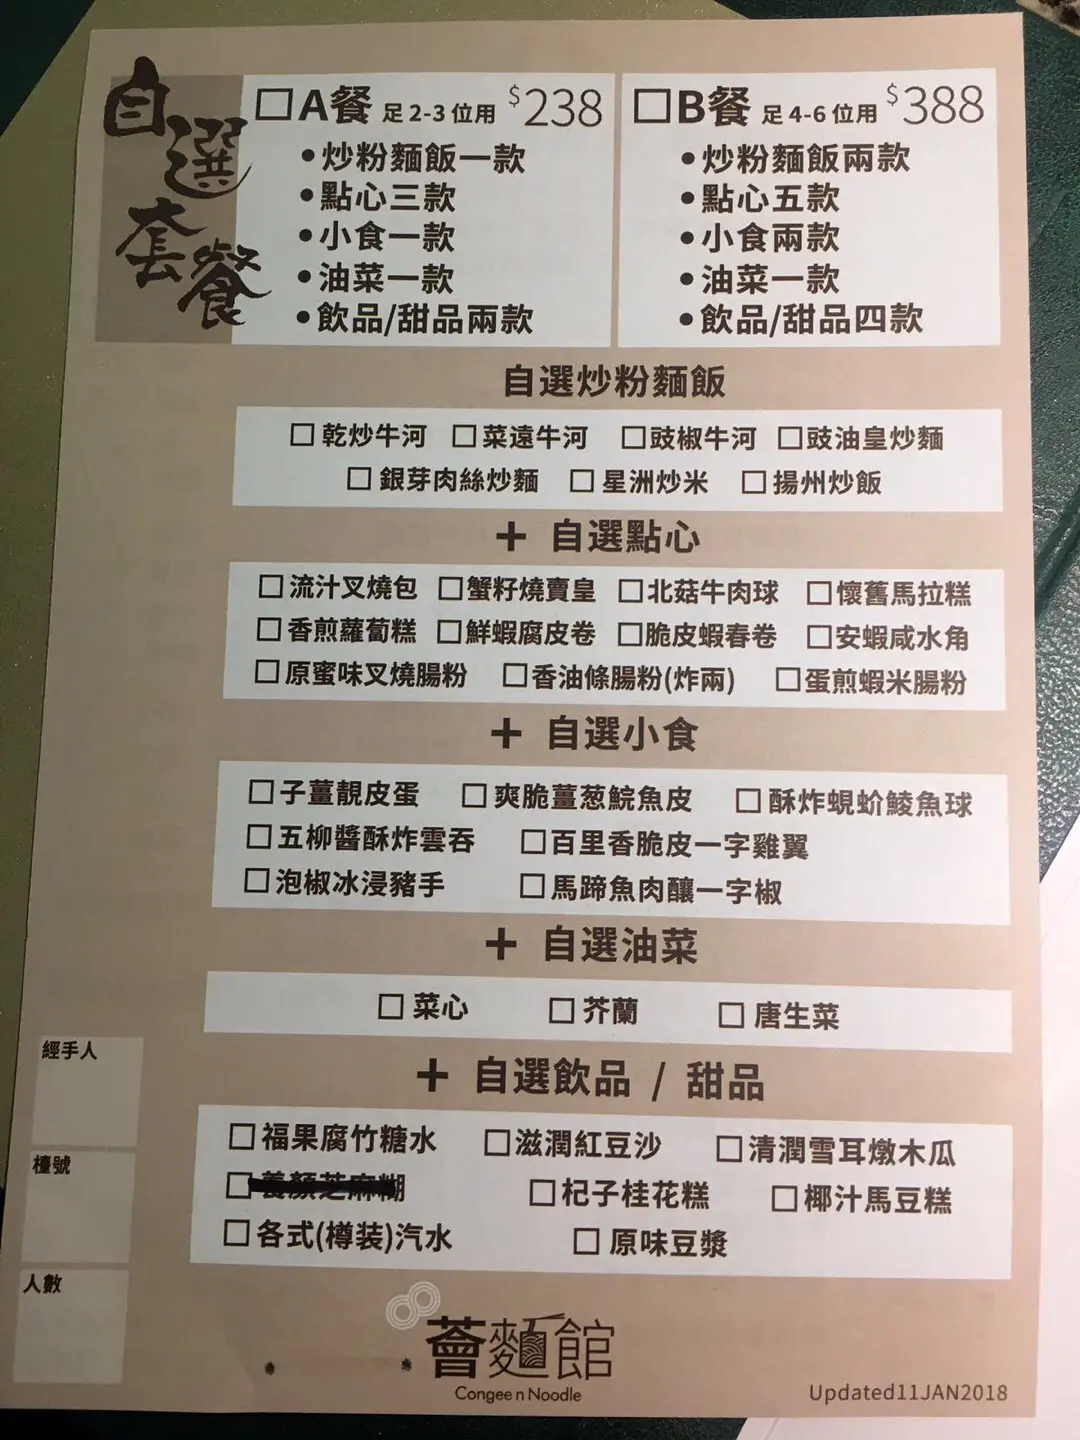 自選套餐
□A餐 足2-3位用 $238
•炒粉麵飯一款
•點心三款
•小食一款
•油菜一款
•飲品/甜品兩款
□B餐 足4-6位用 $388
•炒粉麵飯兩款
•點心五款
•小食兩款
•油菜一款
•飲品/甜品四款
自選炒粉麵飯
□乾炒牛河 □菜遠牛河 □豉椒牛河 □豉油皇炒麵
□銀芽肉絲炒麵 □星洲炒米 □揚州炒飯
+ 自選點心
□流汁叉燒包 □蟹籽燒賣皇 □北菇牛肉球 □懷舊馬拉糕
□香煎蘿蔔糕 □鮮蝦腐皮卷 □脆皮蝦春卷 □安蝦咸水角
□原蜜味叉燒腸粉 □香油條腸粉(炸兩) □蛋煎蝦米腸粉
+ 自選小食
□子薑靚皮蛋 □爽脆薑葱鯇魚皮 □酥炸蜆蚧鯪魚球
□五柳醬酥炸雲吞 □百里香脆皮一字雞翼
□泡椒冰浸豬手 □馬蹄魚肉釀一字椒
+ 自選油菜
□菜心 □芥蘭 □唐生菜
+ 自選飲品 / 甜品
□福果腐竹糖水 □滋潤紅豆沙 □清潤雪耳燉木瓜
□養顏芝麻糊 □杞子桂花糕 □椰汁馬豆糕
□各式(樽装)汽水 □原味豆漿
經手人
檯號
人數
薈麵館
Congee n Noodle
Updated11JAN2018